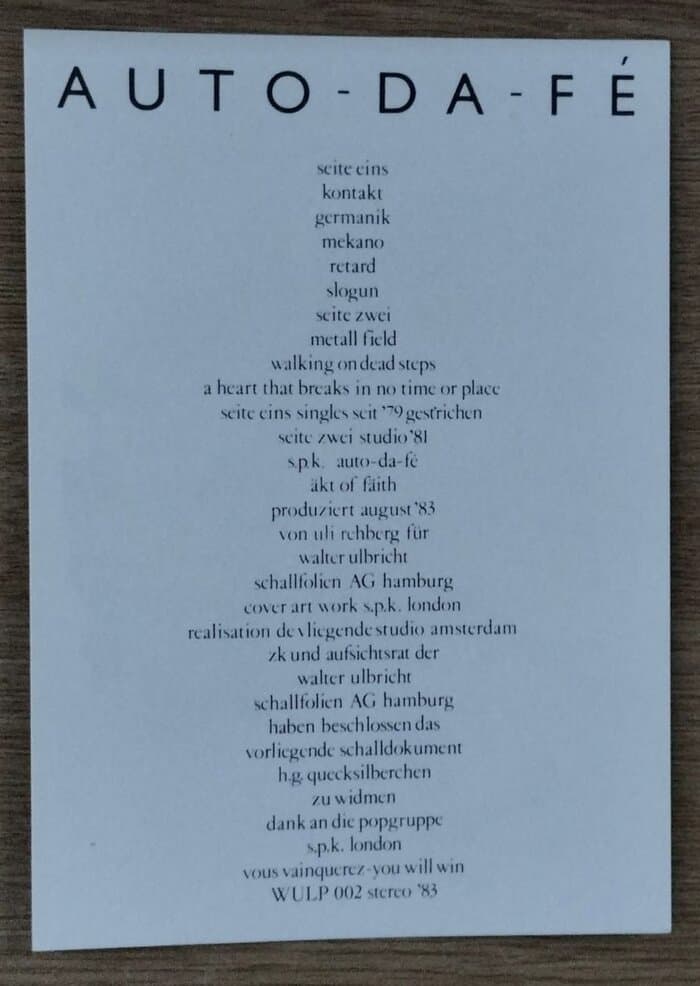 AUTO-DA-FÉ
seite eins
kontakt
germanik
mekano
retard
slogun
seite zwei
metall field
walking on dead steps
a heart that breaks in no time or place
seite eins singles seit '79 gestrichen
seite zwei studio '81
s.p.k. auto-da-fé
äkt of fäith
produziert august '83
von uli rehberg für
walter ulbricht
schallfolien AG hamburg
cover art work s.p.k. london
realisation de vliegende studio amsterdam
zk und aufsichtsrat der
walter ulbricht
schallfolien AG hamburg
haben beschlossen das
vorliegende schalldokument
h.g. quecksilberchen
zu widmen
dank an die popgruppe
s.p.k. london
vous vainquerez-you will win
WULP 002 stereo '83